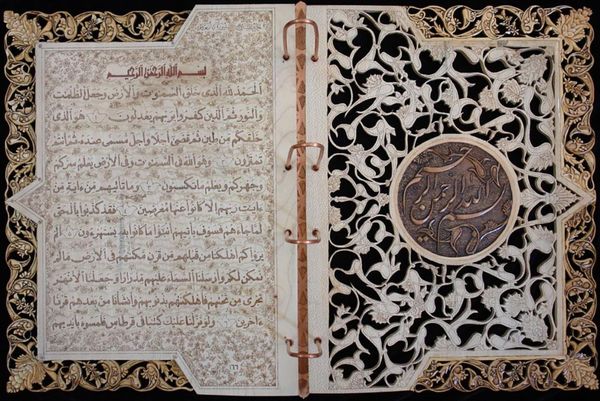 بسم الله الرحمن الرحيم
الحمد لله الذي خلق السموت والارض وجعل الظلمت
والنور ثم الذين كفروا بربهم يعدلون هو الذي
خلقكم من طين ثم قضى اجلا واجل مسمى عنده ثم انتم
تمترون وهو الله في السموت وفي الارض يعلم سركم
وجهركم ويعلم ما تكسبون وما تاتيهم من ءاية من
ءايت ربهم الا كانوا عنها معرضين فقد كذبوا بالحق
لما جاءهم فسوف ياتيهم انبؤا ما كانوا به يستهزءون الم
يروا كم اهلكنا من قبلهم من قرن مكنهم في الارض ما لم
نمكن لكم وارسلنا السماء عليهم مدرارا وجعلنا الانهر
تجري من تحتهم فاهلكنهم بذنوبهم وانشانا من بعدهم قرنا
ءاخرين ولو نزلنا عليك كتبا في قرطاس فلمسوه بايديهم
بسم الله الرحمن الرحيم